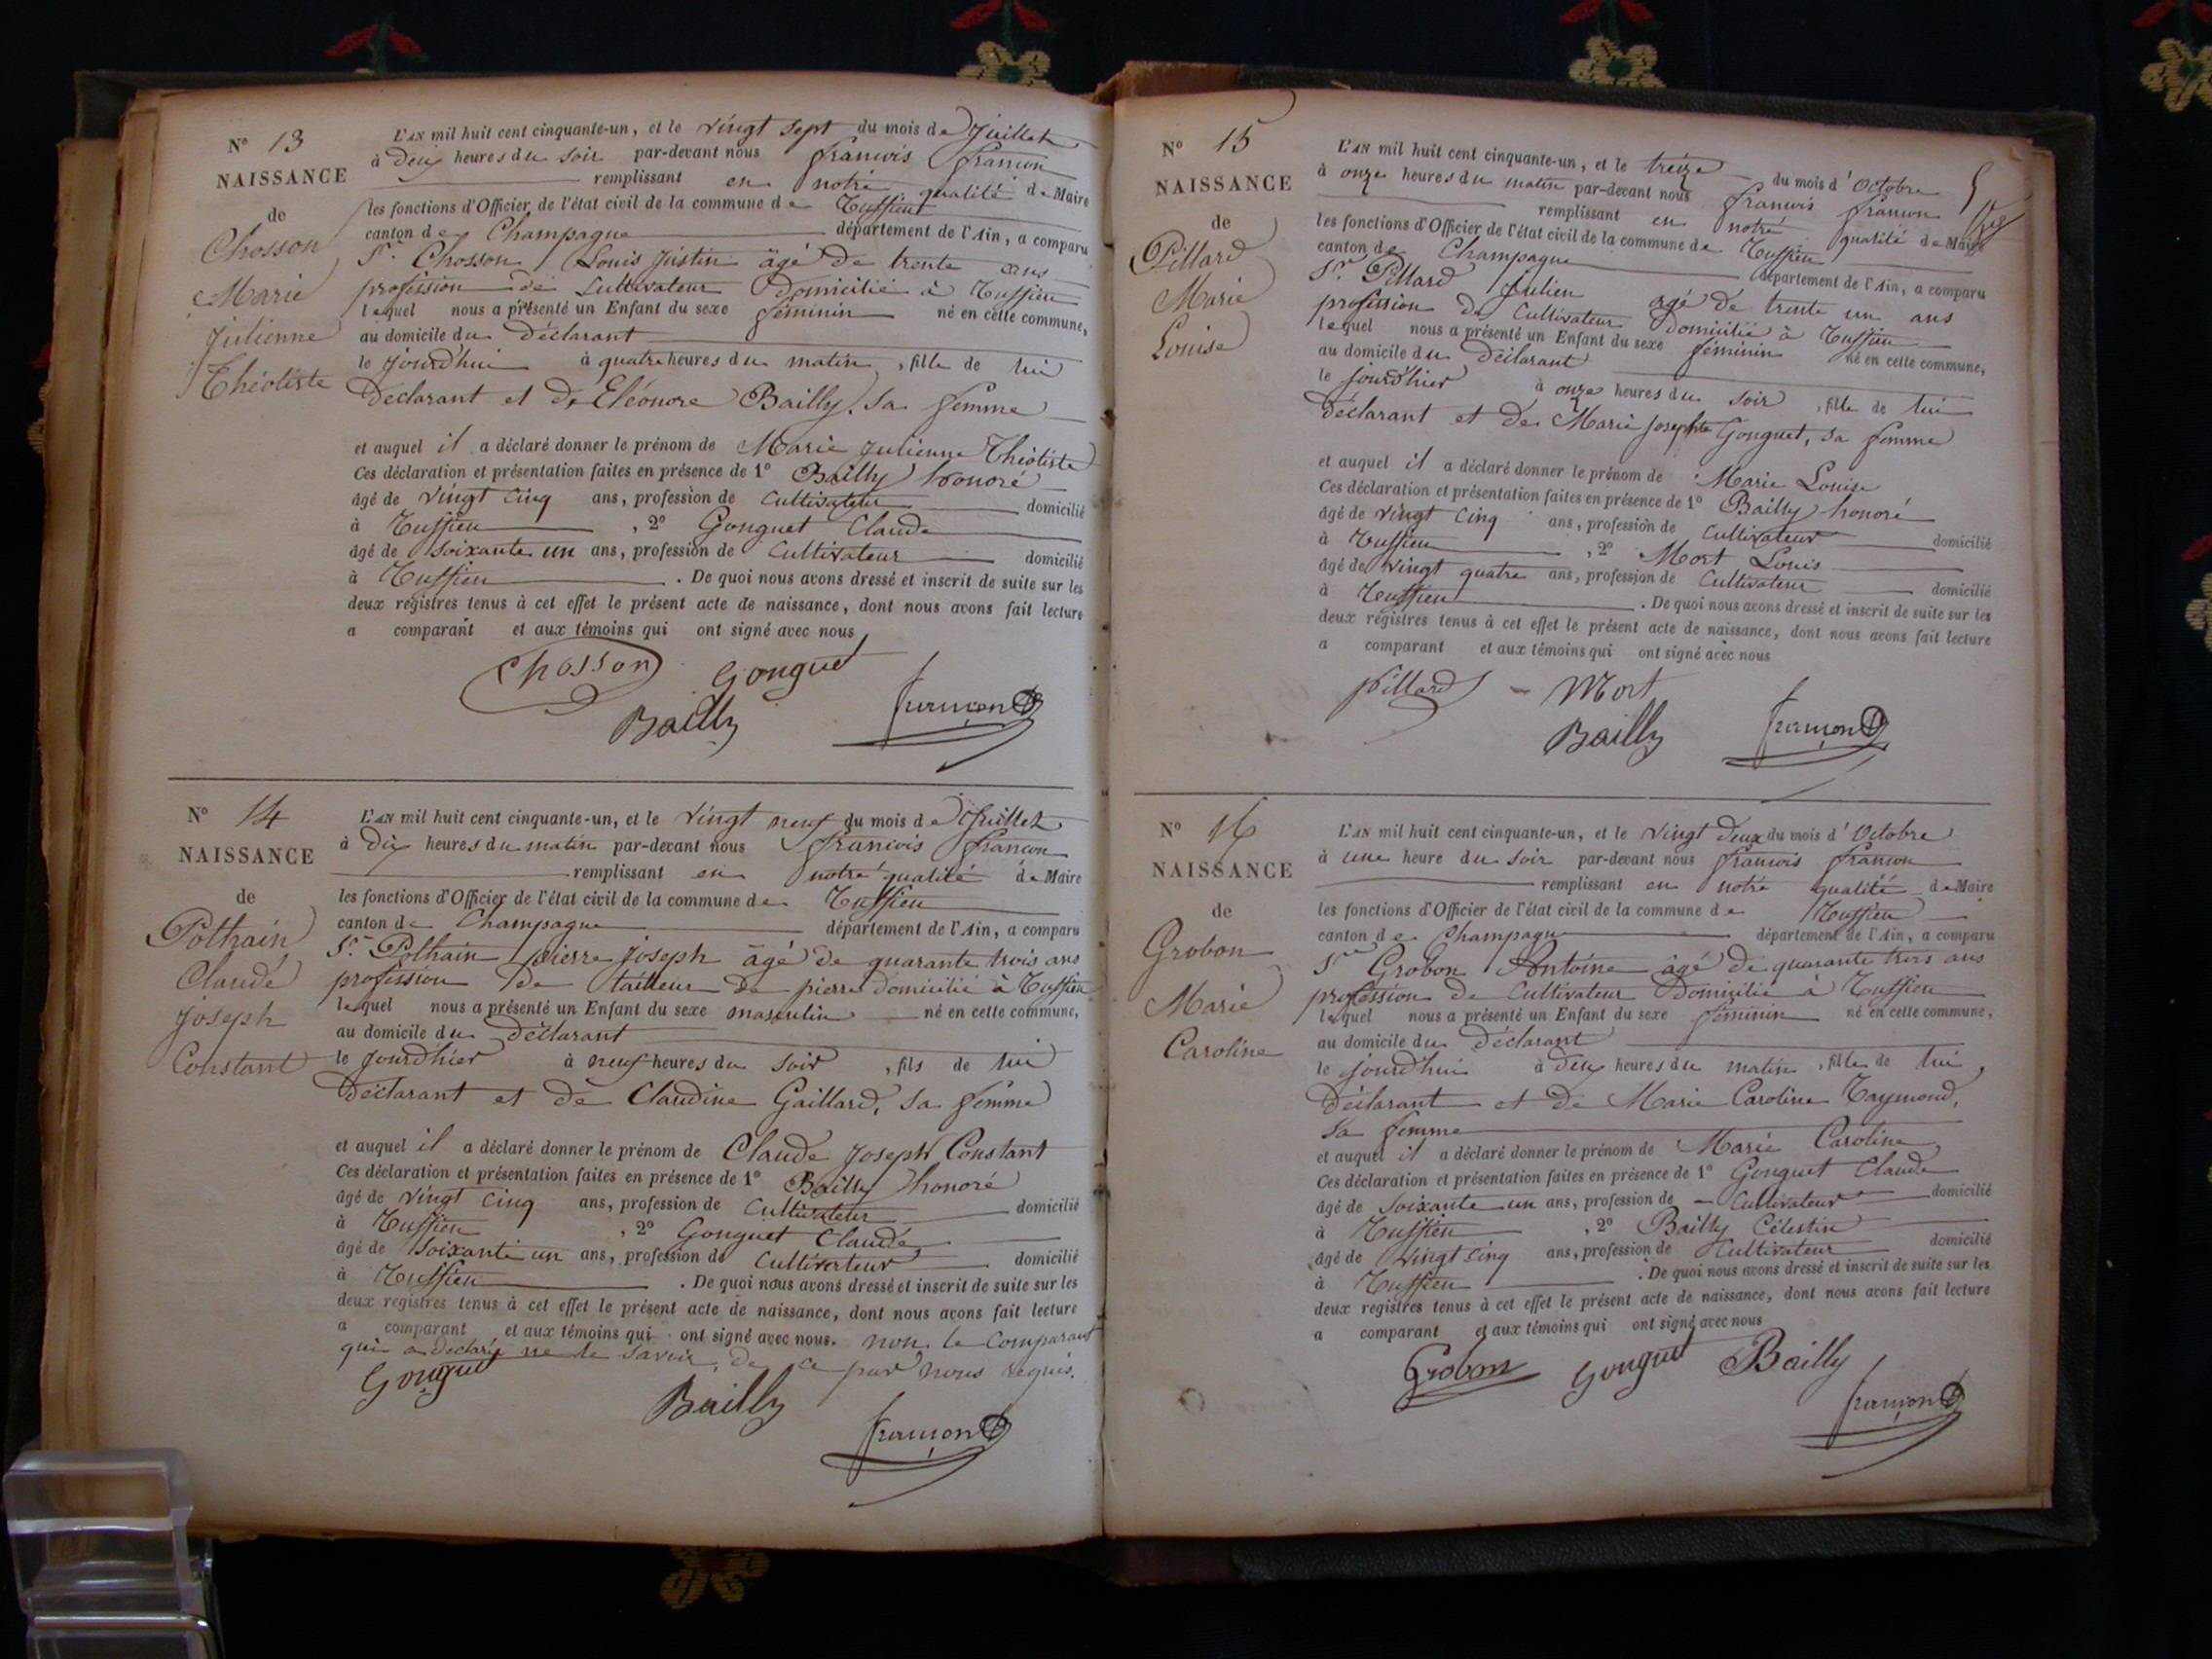 N° 13
NAISSANCE
de
Chosson
Marie
Julienne
Théotiste
L'AN mil huit cent cinquante-un, et le vingt sept du mois de Juillet
à deux heures du soir par-devant nous francois francon
remplissant en notre qualité de Maire
les fonctions d'Officier de l'état civil de la commune de Ruffieu
canton de Champagne département de l'Ain, a comparu
Sr. Chosson Louis Justin âgé de trente ans
profession de Cultivateur domicilié à Ruffieu
lequel nous a présenté un Enfant du sexe féminin né en cette commune,
au domicile du déclarant
le jourd'hui à quatre heures du matin, fille de lui
déclarant et de Eléonore Bailly, sa femme
et auquel il a déclaré donner le prénom de Marie Julienne Théotiste
Ces déclaration et présentation faites en présence de 1° Bailly honoré
âgé de vingt cinq ans, profession de Cultivateur domicilié
à Ruffieu, 2° Gonguet Claude
âgé de soixante un ans, profession de Cultivateur domicilié
à Ruffieu. De quoi nous avons dressé et inscrit de suite sur les
deux registres tenus à cet effet le présent acte de naissance, dont nous avons fait lecture
a comparant et aux témoins qui ont signé avec nous
Chosson Gonguet
Bailly françon
N° 14
NAISSANCE
de
Pothain
Claude
Joseph
Constant
L'AN mil huit cent cinquante-un, et le vingt neuf du mois de Juillet
à dix heures du matin par-devant nous francois francon
remplissant en notre qualité de Maire
les fonctions d'Officier de l'état civil de la commune de Ruffieu
canton de Champagne département de l'Ain, a comparu
Sr. Pothain pierre Joseph âgé de quarante trois ans
profession de tailleur de pierre domicilié à Ruffieu
lequel nous a présenté un Enfant du sexe masculin né en cette commune,
au domicile du déclarant
le jourd'hier à neuf heures du soir, fils de lui
déclarant et de Claudine Gaillard, sa femme
et auquel il a déclaré donner le prénom de Claude Joseph Constant
Ces déclaration et présentation faites en présence de 1° Bailly honoré
âgé de vingt cinq ans, profession de Cultivateur domicilié
à Ruffieu, 2° Gonguet Claude
âgé de soixante un ans, profession de Cultivateur domicilié
à Ruffieu. De quoi nous avons dressé et inscrit de suite sur les
deux registres tenus à cet effet le présent acte de naissance, dont nous avons fait lecture
a comparant et aux témoins qui ont signé avec nous. non le comparant
qui a déclaré ne le savoir, de ce par nous requis.
Gonguet
Bailly
françon
N° 15
NAISSANCE
de
Pillard
Marie
Louise
L'AN mil huit cent cinquante-un, et le treize du mois d'Octobre
à onze heures du matin par-devant nous francois francon
remplissant en notre qualité de Maire
les fonctions d'Officier de l'état civil de la commune de Ruffieu
canton de Champagne département de l'Ain, a comparu
Sr. Pillard Julien âgé de trente un ans
profession de Cultivateur domicilié à Ruffieu
lequel nous a présenté un Enfant du sexe féminin né en cette commune,
au domicile du déclarant
le jourd'hier à onze heures du soir, fille de lui
déclarant et de Marie Josephte Gonguet, sa femme
et auquel il a déclaré donner le prénom de Marie Louise
Ces déclaration et présentation faites en présence de 1° Bailly honoré
âgé de vingt cinq ans, profession de Cultivateur domicilié
à Ruffieu, 2° Mort Louis
âgé de vingt quatre ans, profession de Cultivateur domicilié
à Ruffieu. De quoi nous avons dressé et inscrit de suite sur les
deux registres tenus à cet effet le présent acte de naissance, dont nous avons fait lecture
a comparant et aux témoins qui ont signé avec nous
pillard Mort
Bailly françon
N° 16
NAISSANCE
de
Grobon
Marie
Caroline
L'AN mil huit cent cinquante-un, et le vingt deux du mois d'Octobre
à une heure du soir par-devant nous francois francon
remplissant en notre qualité de Maire
les fonctions d'Officier de l'état civil de la commune de Ruffieu
canton de Champagne département de l'Ain, a comparu
Sr Grobon Antoine âgé de quarante trois ans
profession de Cultivateur domicilié à Ruffieu
lequel nous a présenté un Enfant du sexe féminin né en cette commune,
au domicile du déclarant
le jourd'hui à deux heures du matin, fille de lui,
déclarant et de Marie Caroline Raymond,
sa femme
et auquel il a déclaré donner le prénom de Marie Caroline
Ces déclaration et présentation faites en présence de 1° Gonguet Claude
âgé de soixante un ans, profession de Cultivateur domicilié
à Ruffieu, 2° Bailly Célestin
âgé de vingt cinq ans, profession de Cultivateur domicilié
à Ruffieu. De quoi nous avons dressé et inscrit de suite sur les
deux registres tenus à cet effet le présent acte de naissance, dont nous avons fait lecture
a comparant et aux témoins qui ont signé avec nous
Grobon Gonguet Bailly
françon